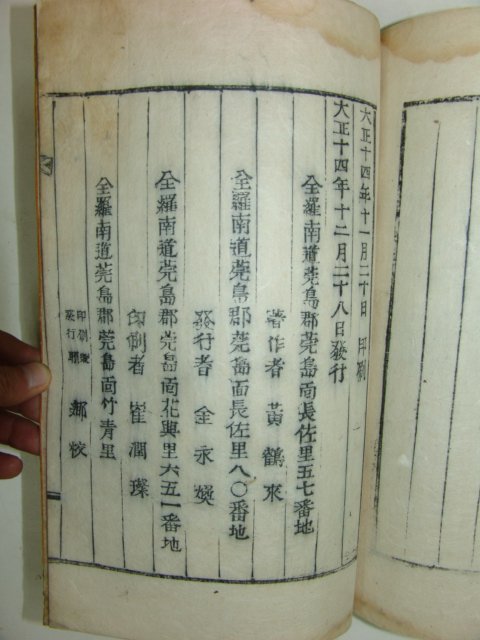 大正十四年十一月二十日 印刷
大正十四年十二月二十八日發行
全羅南道莞島郡莞島面長佐里五七番地
著作者 黃鶴來
全羅南道莞島郡莞島面長佐里八〇番地
發行者 金永煥
全羅南道莞島郡莞島面花興里六五一番地
印刷者 崔潤璨
全羅南道莞島郡莞島面竹青里
印刷兼
發行所 鄕校